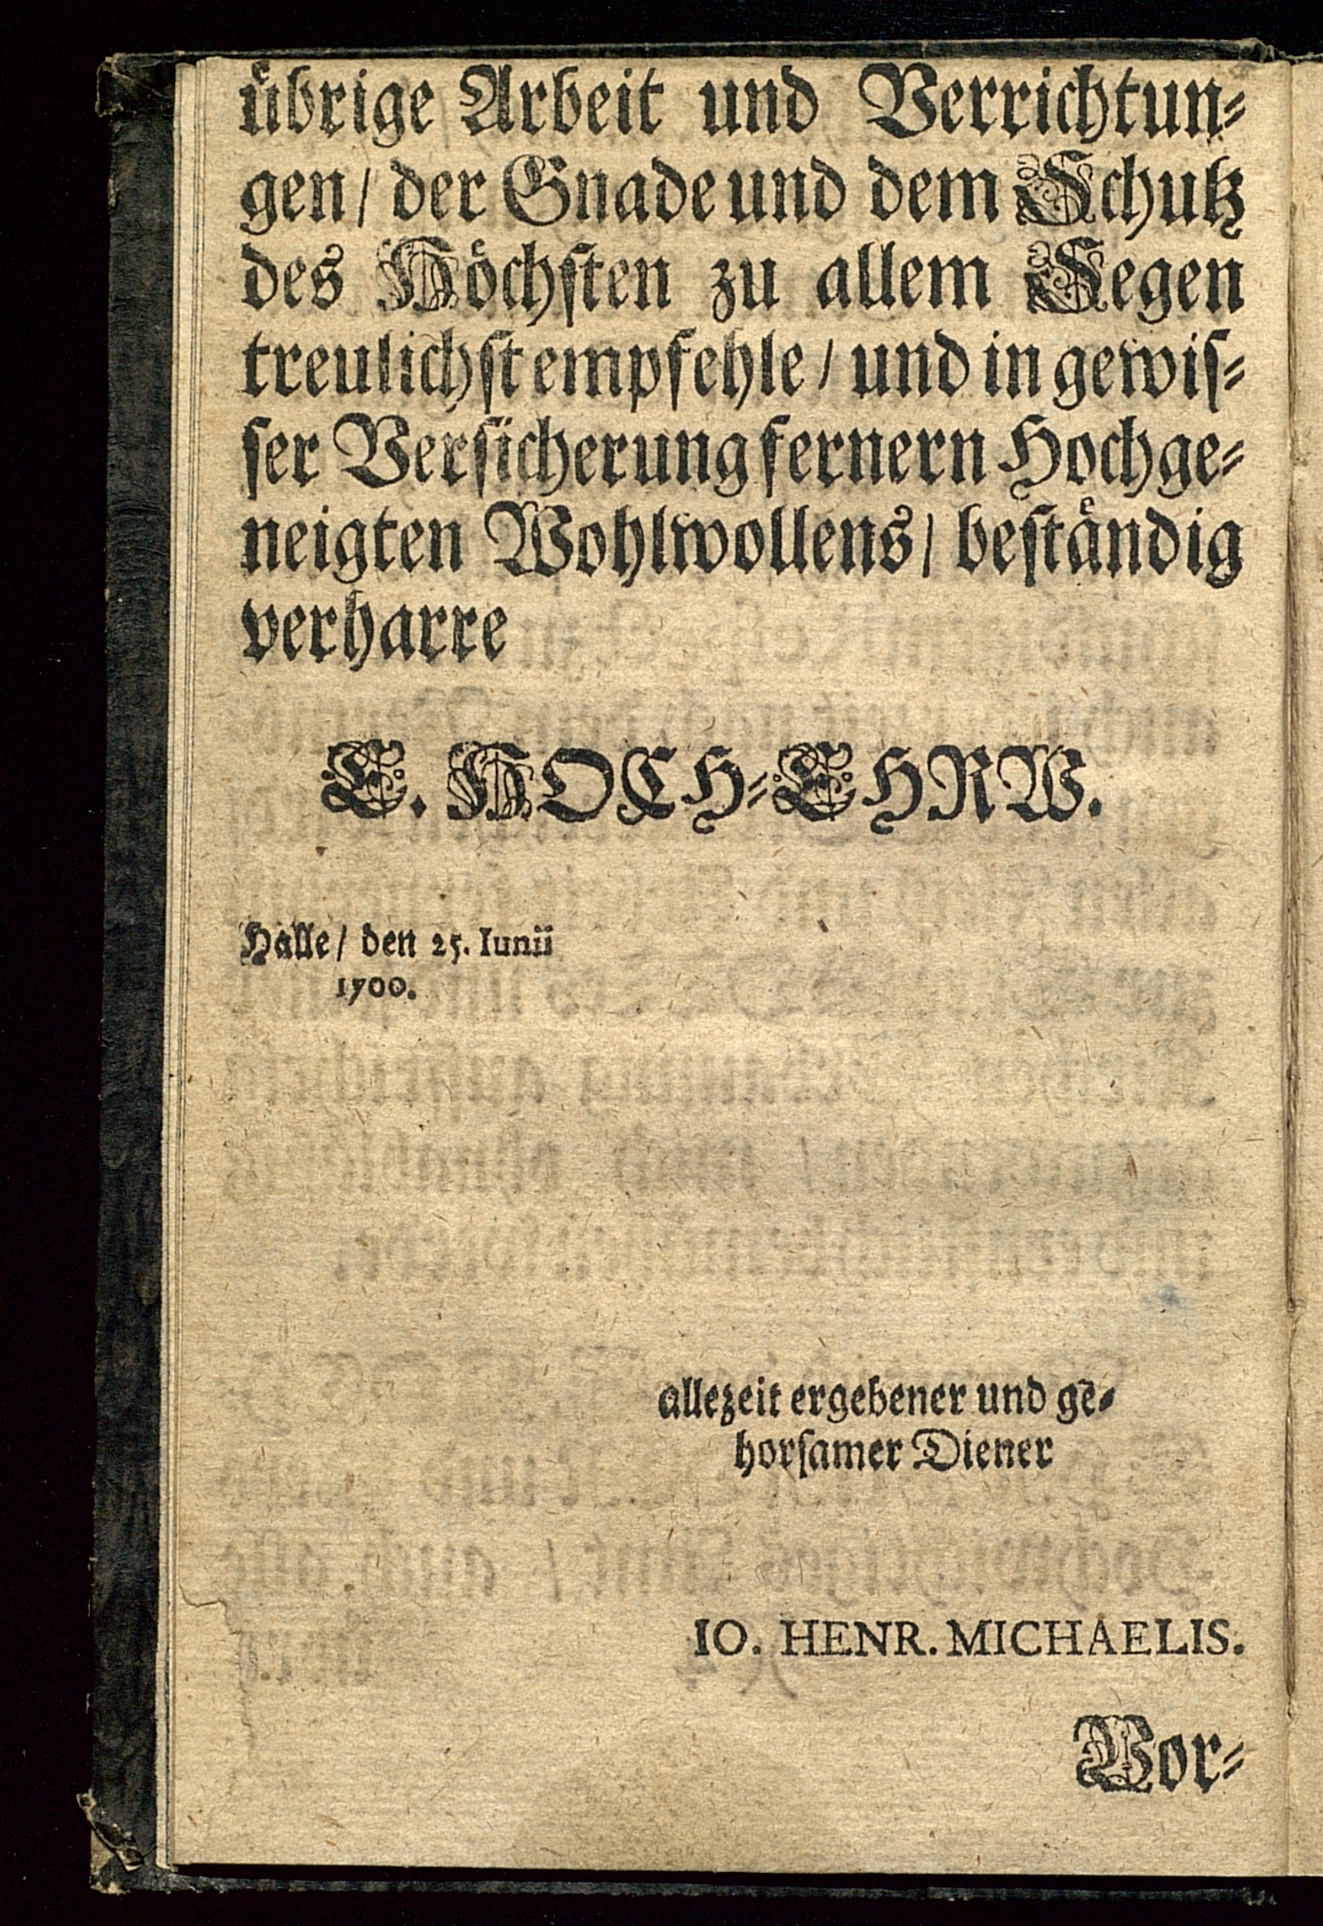 übrige Arbeit und Verrichtun-
gen/ der Gnade und dem Schutz
des Höchsten zu allem Segen
treulichst empfehle/ und in gewis-
ser Versicherung fernern Hochge-
neigten Wohlwollens/ beständig
verharre
E. HOCH-EHRW.
Halle/ den 25. Iunii
1700.
allezeit ergebener und ge-
horsamer Diener
IO. HENR. MICHAELIS.
Vor-